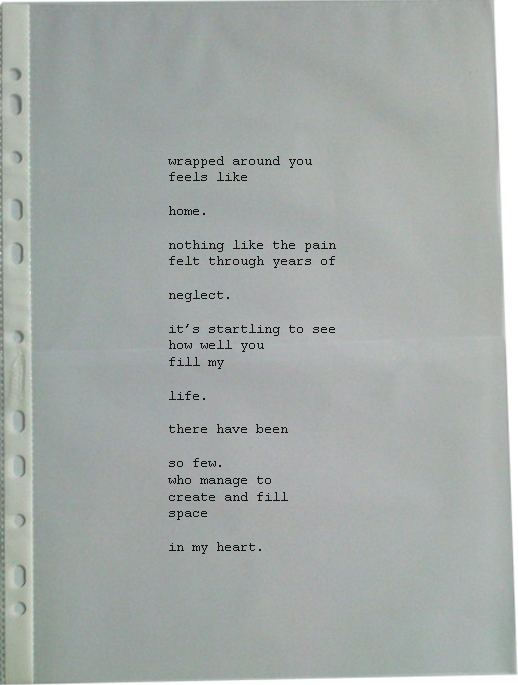 wrapped around you
feels like
home.
nothing like the pain
felt through years of
neglect.
it's startling to see
how well you
fill my
life.
there have been
so few.
who manage to
create and fill
space
in my heart.